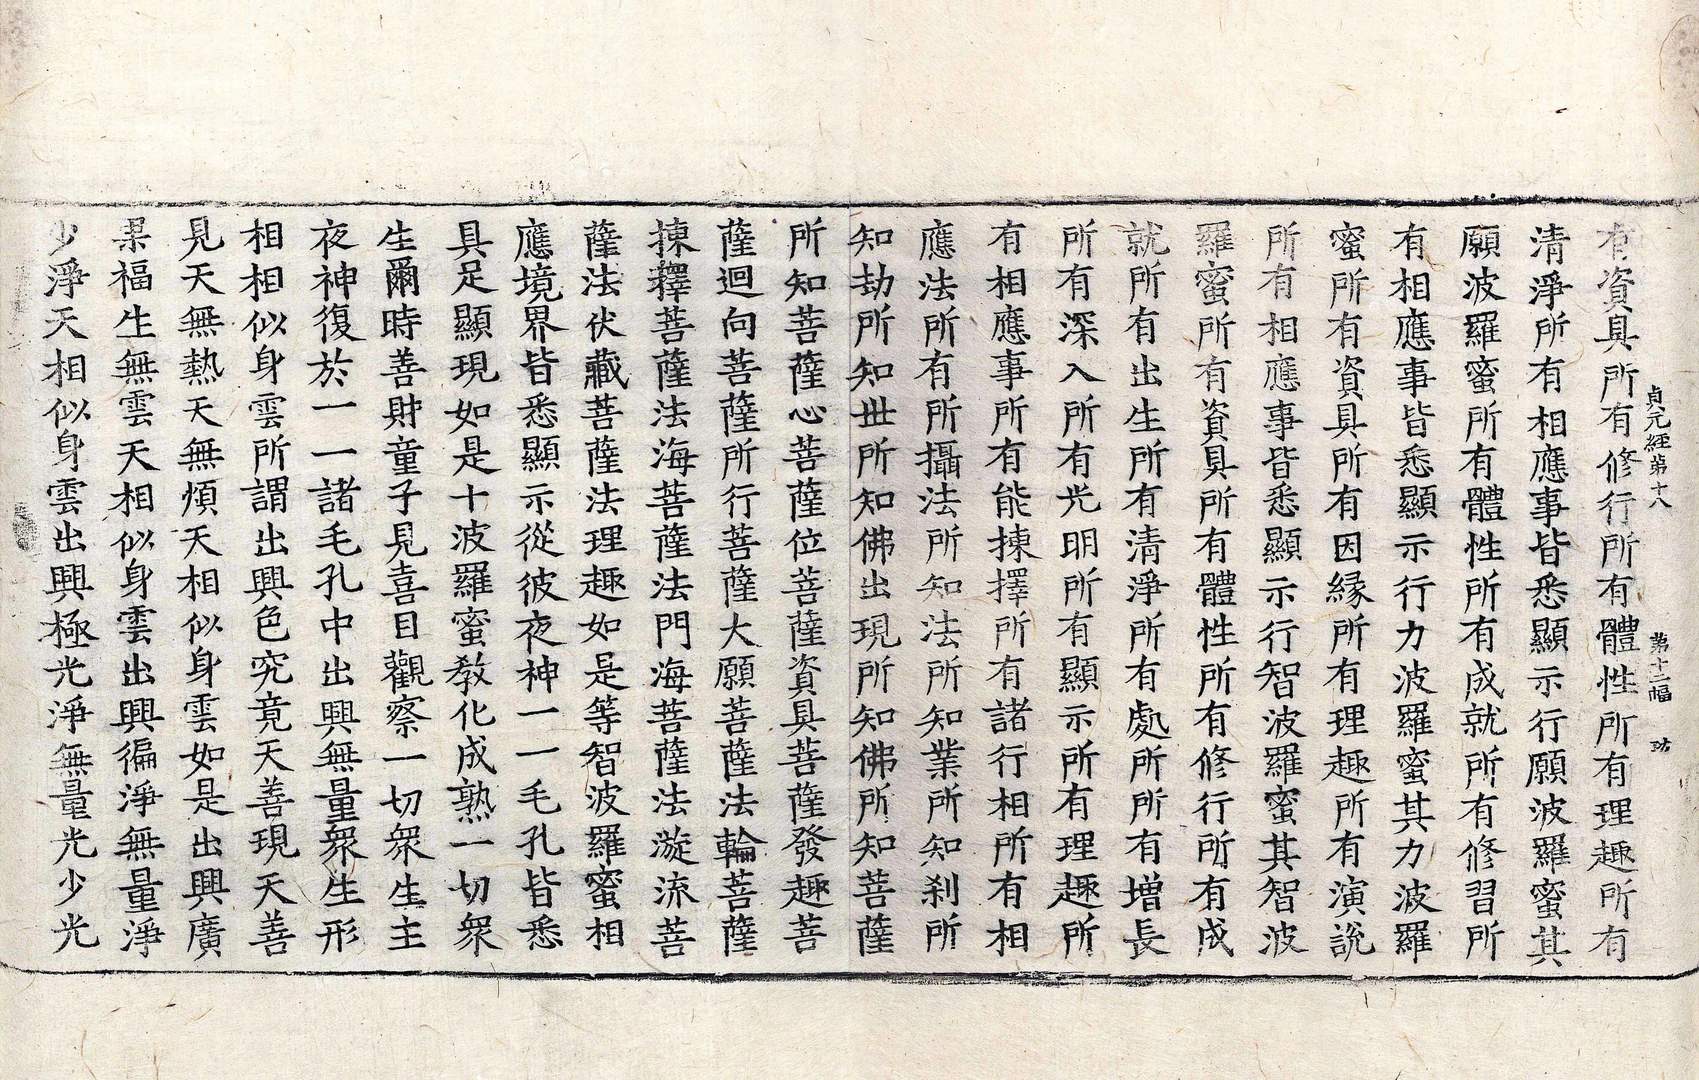 貞元經第十八　第十二幅
有資具所有修行所有體性所有理趣所有
清淨所有相應事皆悉顯示行願波羅蜜其
願波羅蜜所有體性所有成就所有修習所
有相應事皆悉顯示行力波羅蜜其力波羅
蜜所有資具所有因緣所有理趣所有演說
所有相應事皆悉顯示行智波羅蜜其智波
羅蜜所有資具所有體性所有修行所有成
就所有出生所有清淨所有處所所有增長
所有深入所有光明所有顯示所有理趣所
有相應事所有能揀擇所有諸行相所有相
應法所有所攝法所知法所知業所知剎所
知劫所知世所知佛出現所知佛所知菩薩
所知菩薩心菩薩位菩薩資具菩薩發趣菩
薩迴向菩薩所行菩薩大願菩薩法輪菩薩
揀釋菩薩法海菩薩法門海菩薩法漩流菩
薩法伏藏菩薩法理趣如是等智波羅蜜相
應境界皆悉顯示從彼夜神一一毛孔皆悉
具足顯現如是十波羅蜜教化成熟一切眾
生爾時善財童子見喜目觀察一切眾生主
夜神復於一一諸毛孔中出興無量眾生形
相相似身雲所謂出興色究竟天善現天善
見天無熱天無煩天相似身雲如是出興廣
果福生無雲天相似身雲出興徧淨無量淨
少淨天相似身雲出興極光淨無量光少光